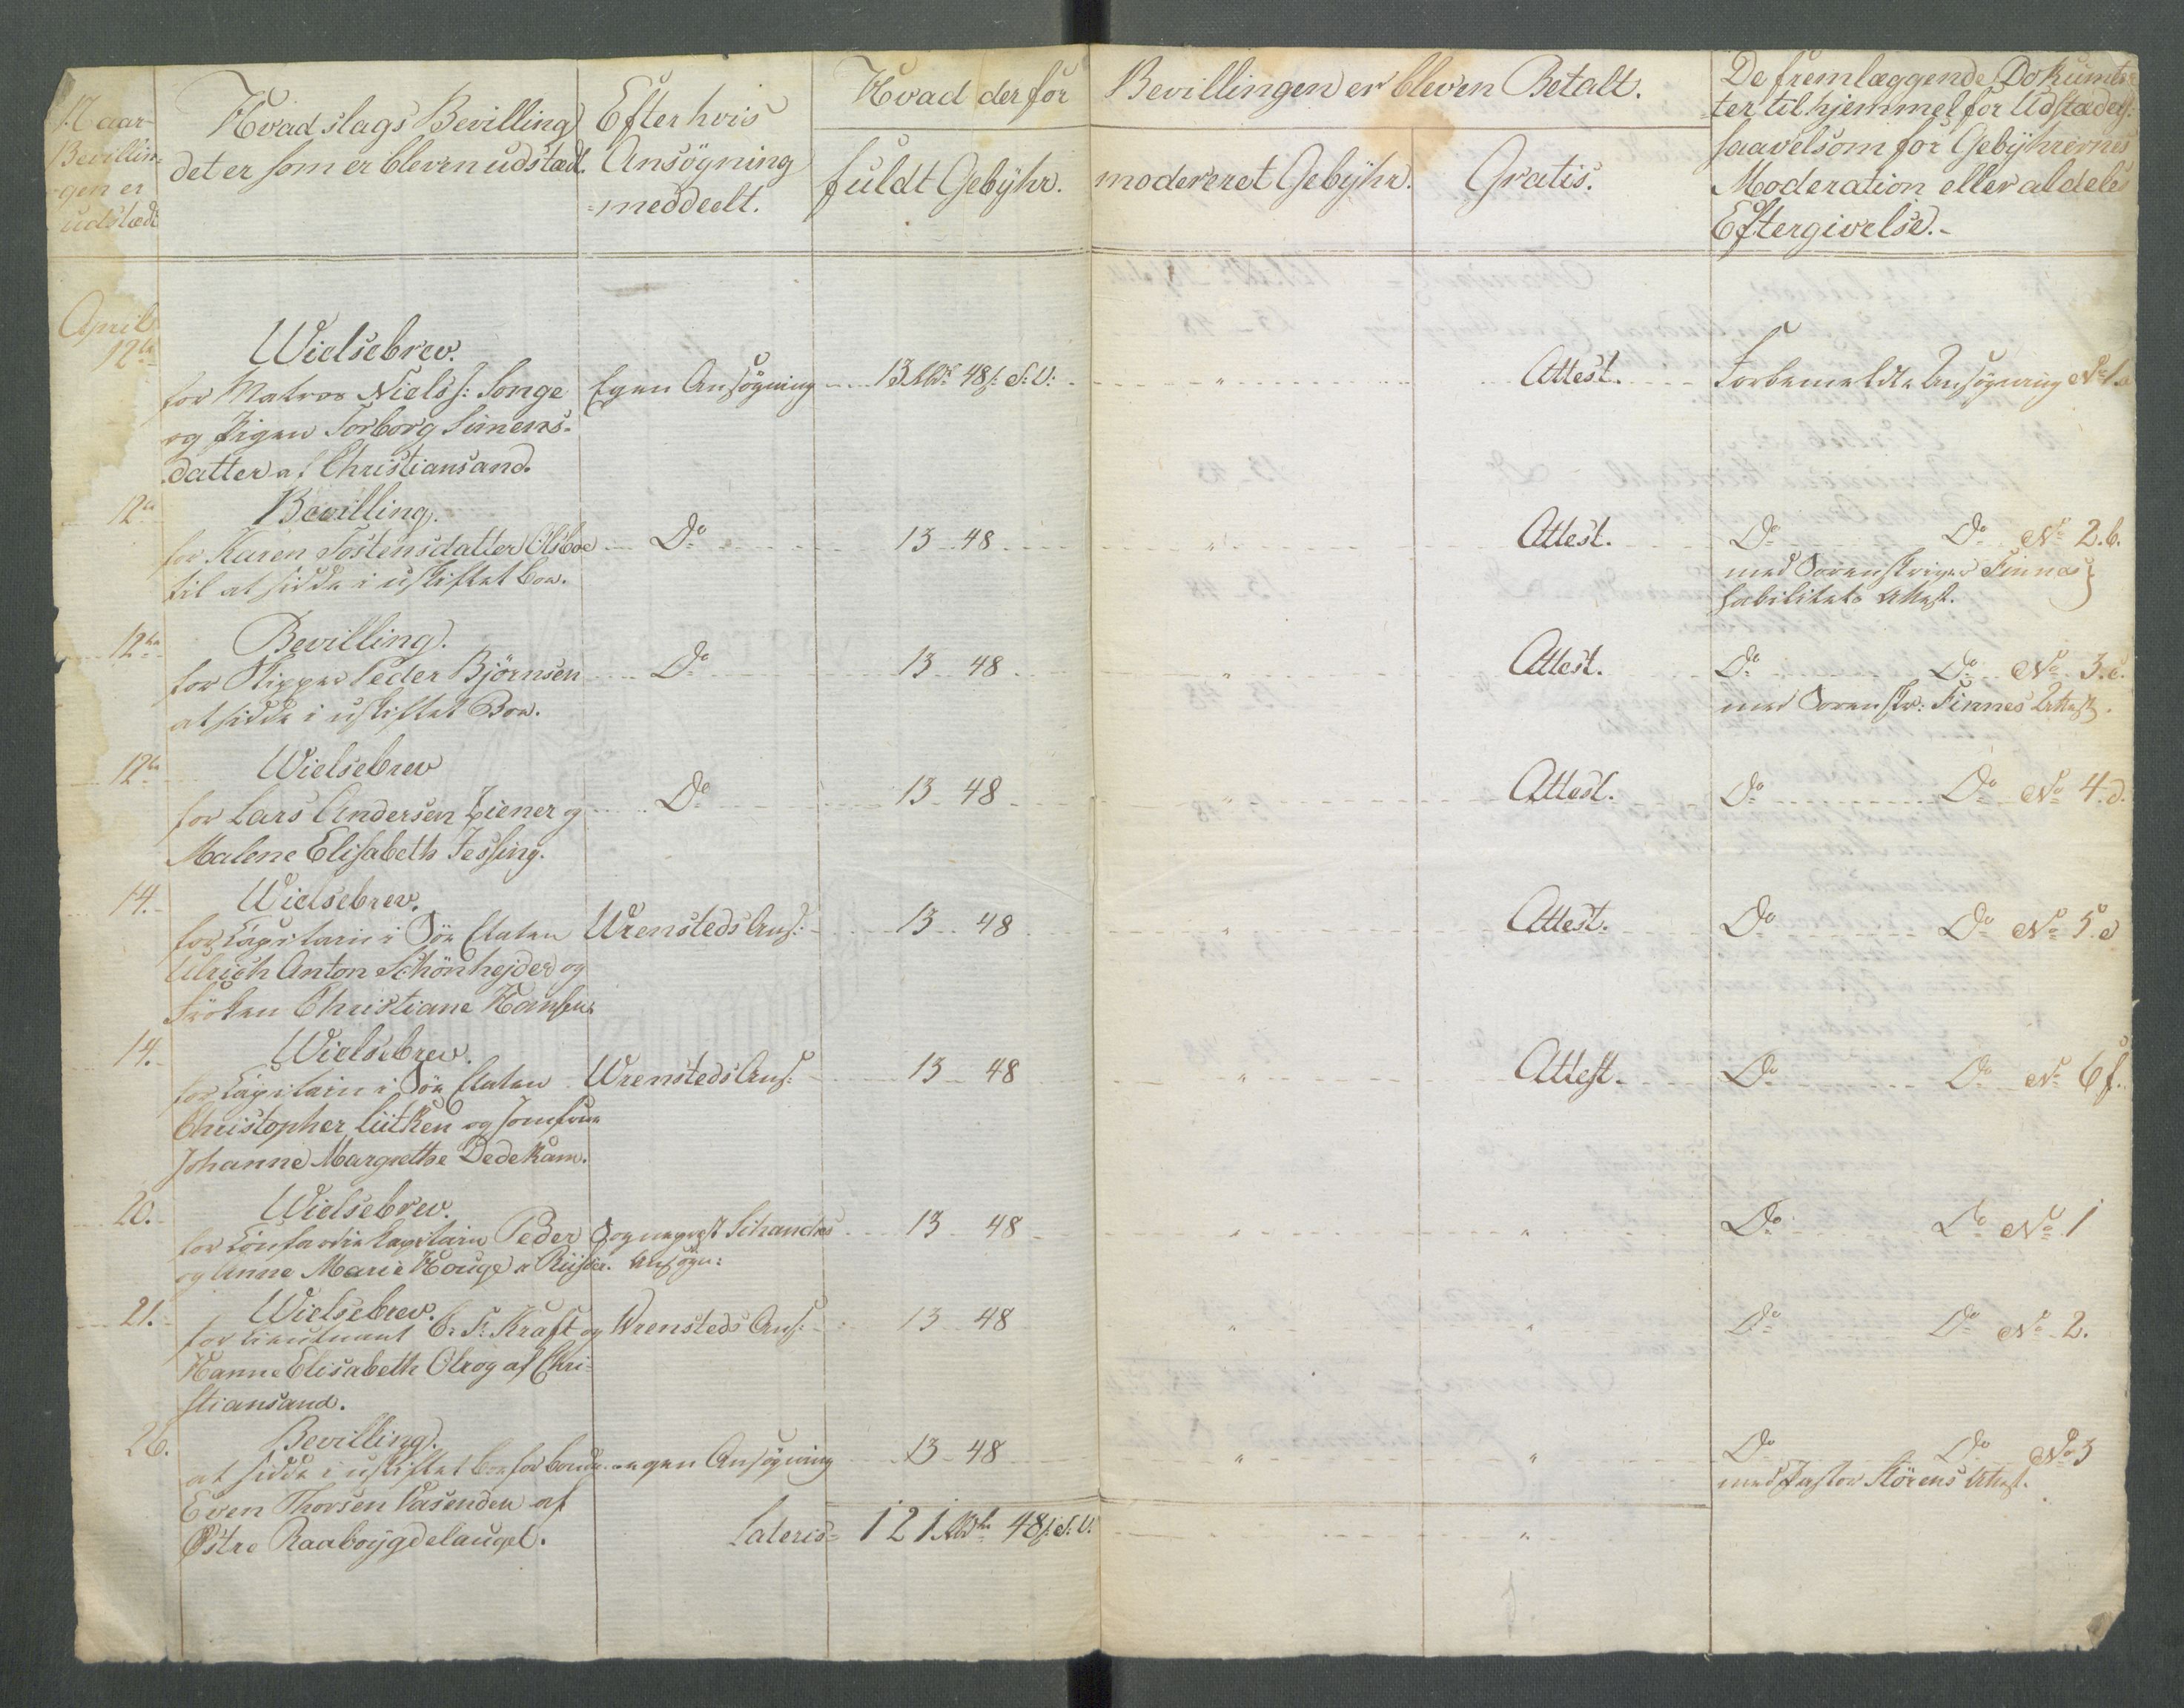 Naar
Bevillin¬
gen er
udstædt
Hvad slags Bevilling
det er som er bleven udstæd.
Efter hvis
Ansögning
meddeelt.
Hvad der for Bevillingen er bleven Betalt.
fuldt Gebÿhr.
modereret Gebÿhr.
Gratis.
De fremlæggende Dokumen¬
ter til hjemmel for Udstædels:
saavelsom for Gebÿhrernes
Moderation eller aldeles
Eftergivelse.-
April
12te
Wielsebrev.
for Matros Niels J: Songe Egen Ansögning 13 Rbd 48 s: S: V: " Attest. Forbemeldte Ansögning No 1.a
og Pigen Torborg Simens¬
datter af Christiansand.
12te
Bevilling.
for Karen Tostensdatter Olsboe Do 13 48 " Attest. Do Do No 2.b.
til at sidde i uskiftet boe. med Sorenskriver Finnes
habilitets Attest.
12te
Bevilling.
for Skipper Peder Björnsen Do 13 48 " Attest. Do Do No 3.c.
at sidde i uskiftet Boe. med Sorenskr: Finnes Attest.
12te
Wielsebrev
for Lars Andersen Ziener og Do 13 48 " Attest. Do Do No 4.d.
Malene Elisabeth Jessing.
14.
Wielsebrev.
for Capitain i Söe Etaten Wrensteds Ans: 13 48 " Attest. Do Do No 5.e
Ulrich Anton Schönhejder og
Fröken Christiane Hansen
14.
Wielsebrev.
for Capitain i Söe Etaten Wrensteds Ans: 13 48 " Attest. Do Do No 6 f.
Christopher Lütken og Jomfrue
Johanne Margrethe Dedekam.
20.
Wielsebrev.
for Coufardie Capitain Peder Sognepræst Schanches 13 48 " " Do Do No 1
og Anne Marie Houge Riisöer. Ansögn:
21.
Wielsebrev.
for Lieutnant C. F. Kraft og Wrensteds Ans: 13 48 " " Do Do No 2.
Hanne Elisabeth Olrog af Chri¬
stiansand.
26.
Bevilling.
at sidde i uskiftet boe for bonde egen Ansögning 13 48 " " Do Do No 3
Even Thorsen Vasenden af med Pastor Störens Attest.
Östre Raaboÿgdelauget. Lateris 121 Rbd 48 s. S. V. "